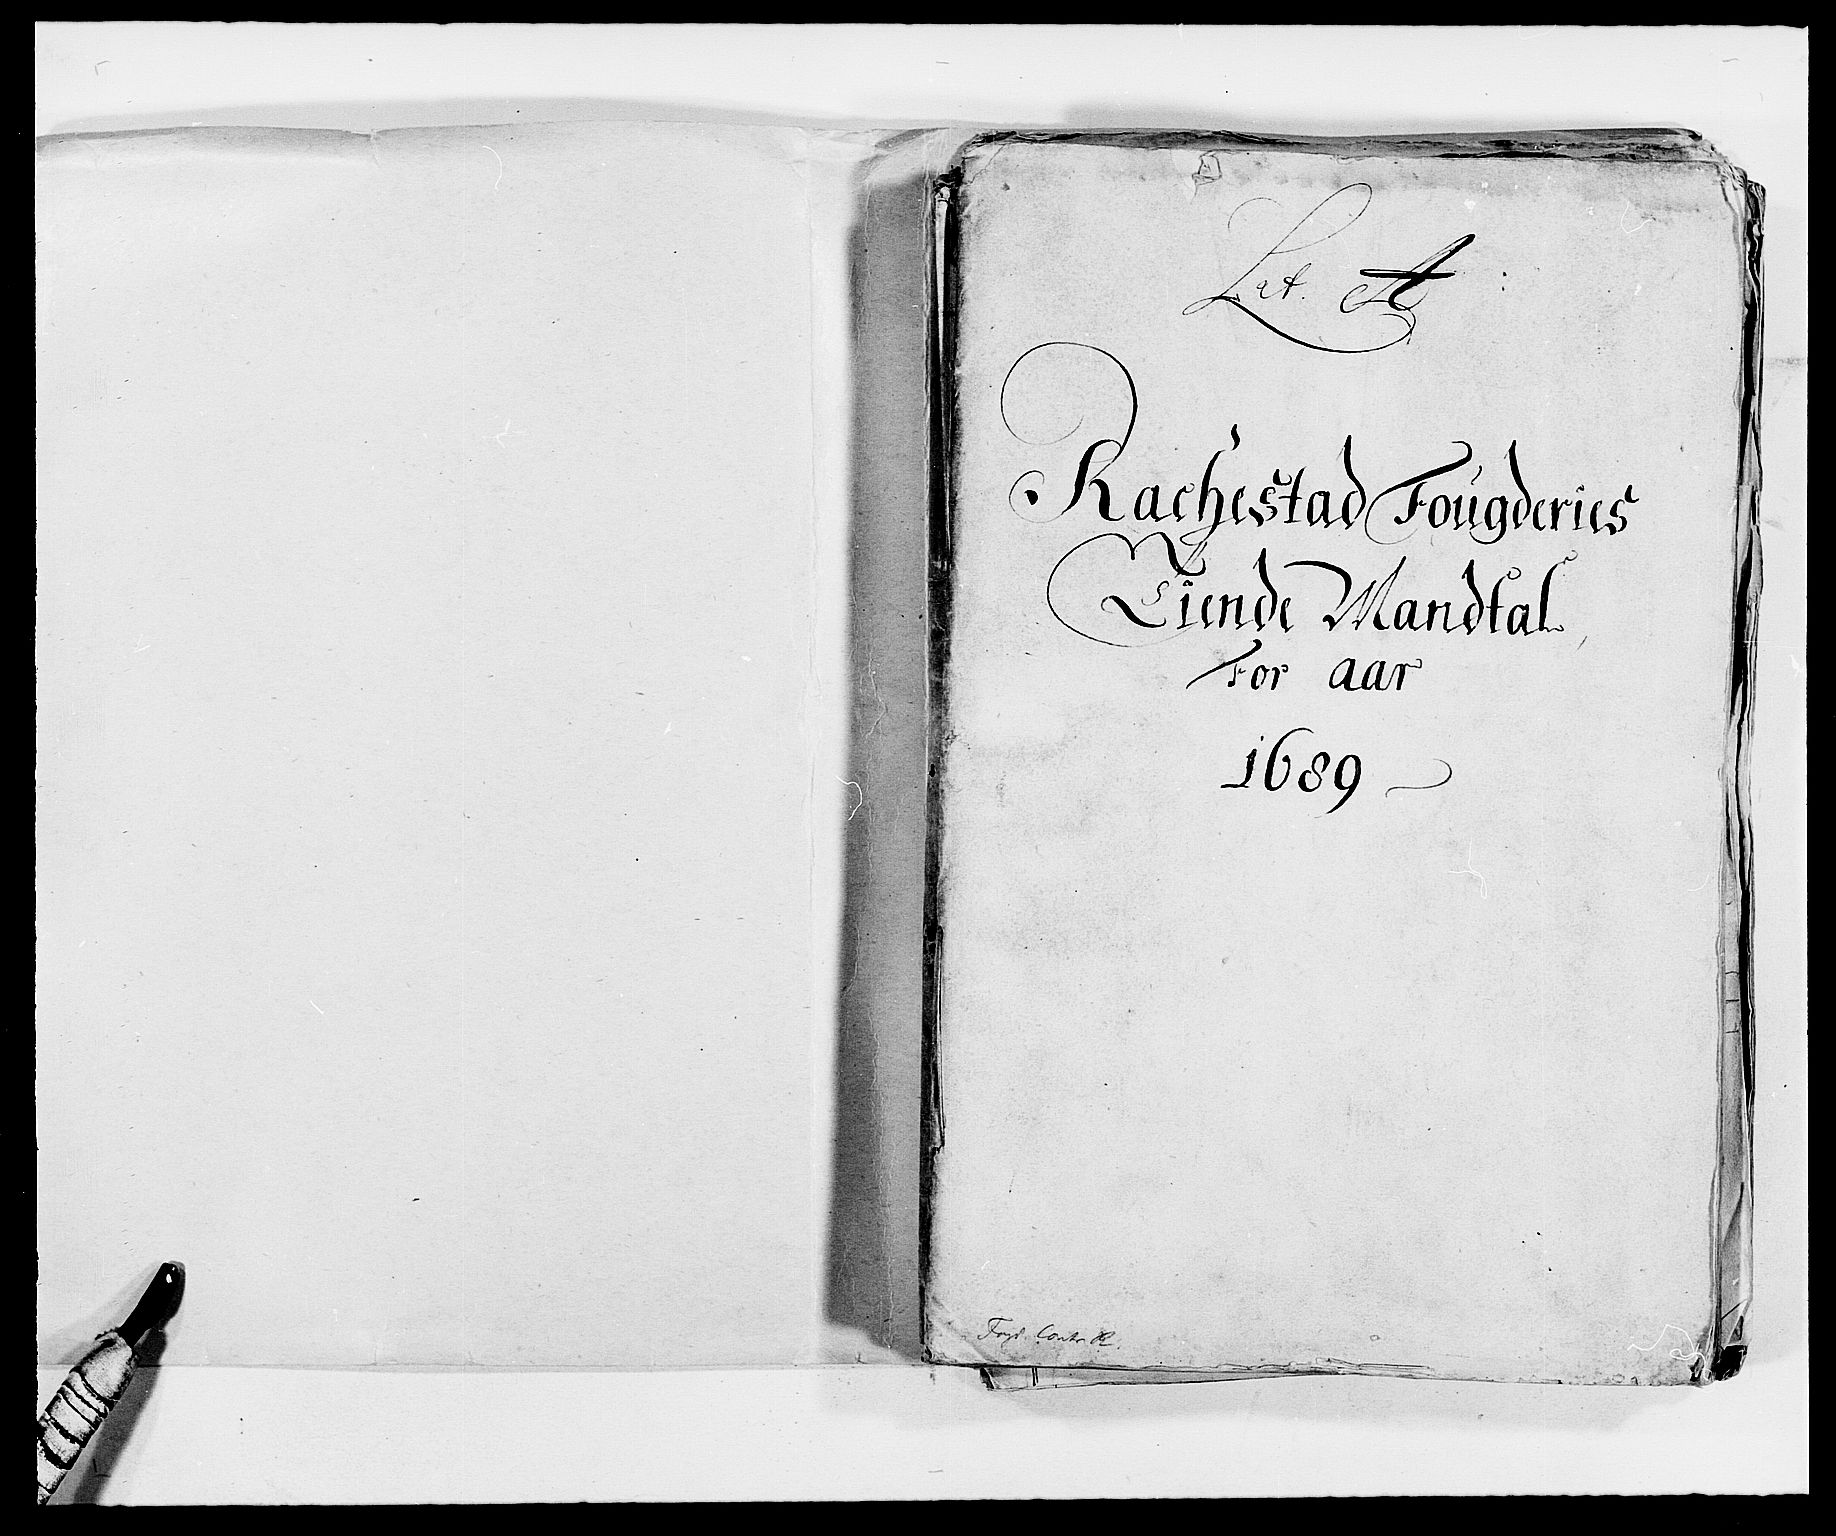 Lit. A :
Rachestad Fougderies
Tiende Mandtal
For aar
1689